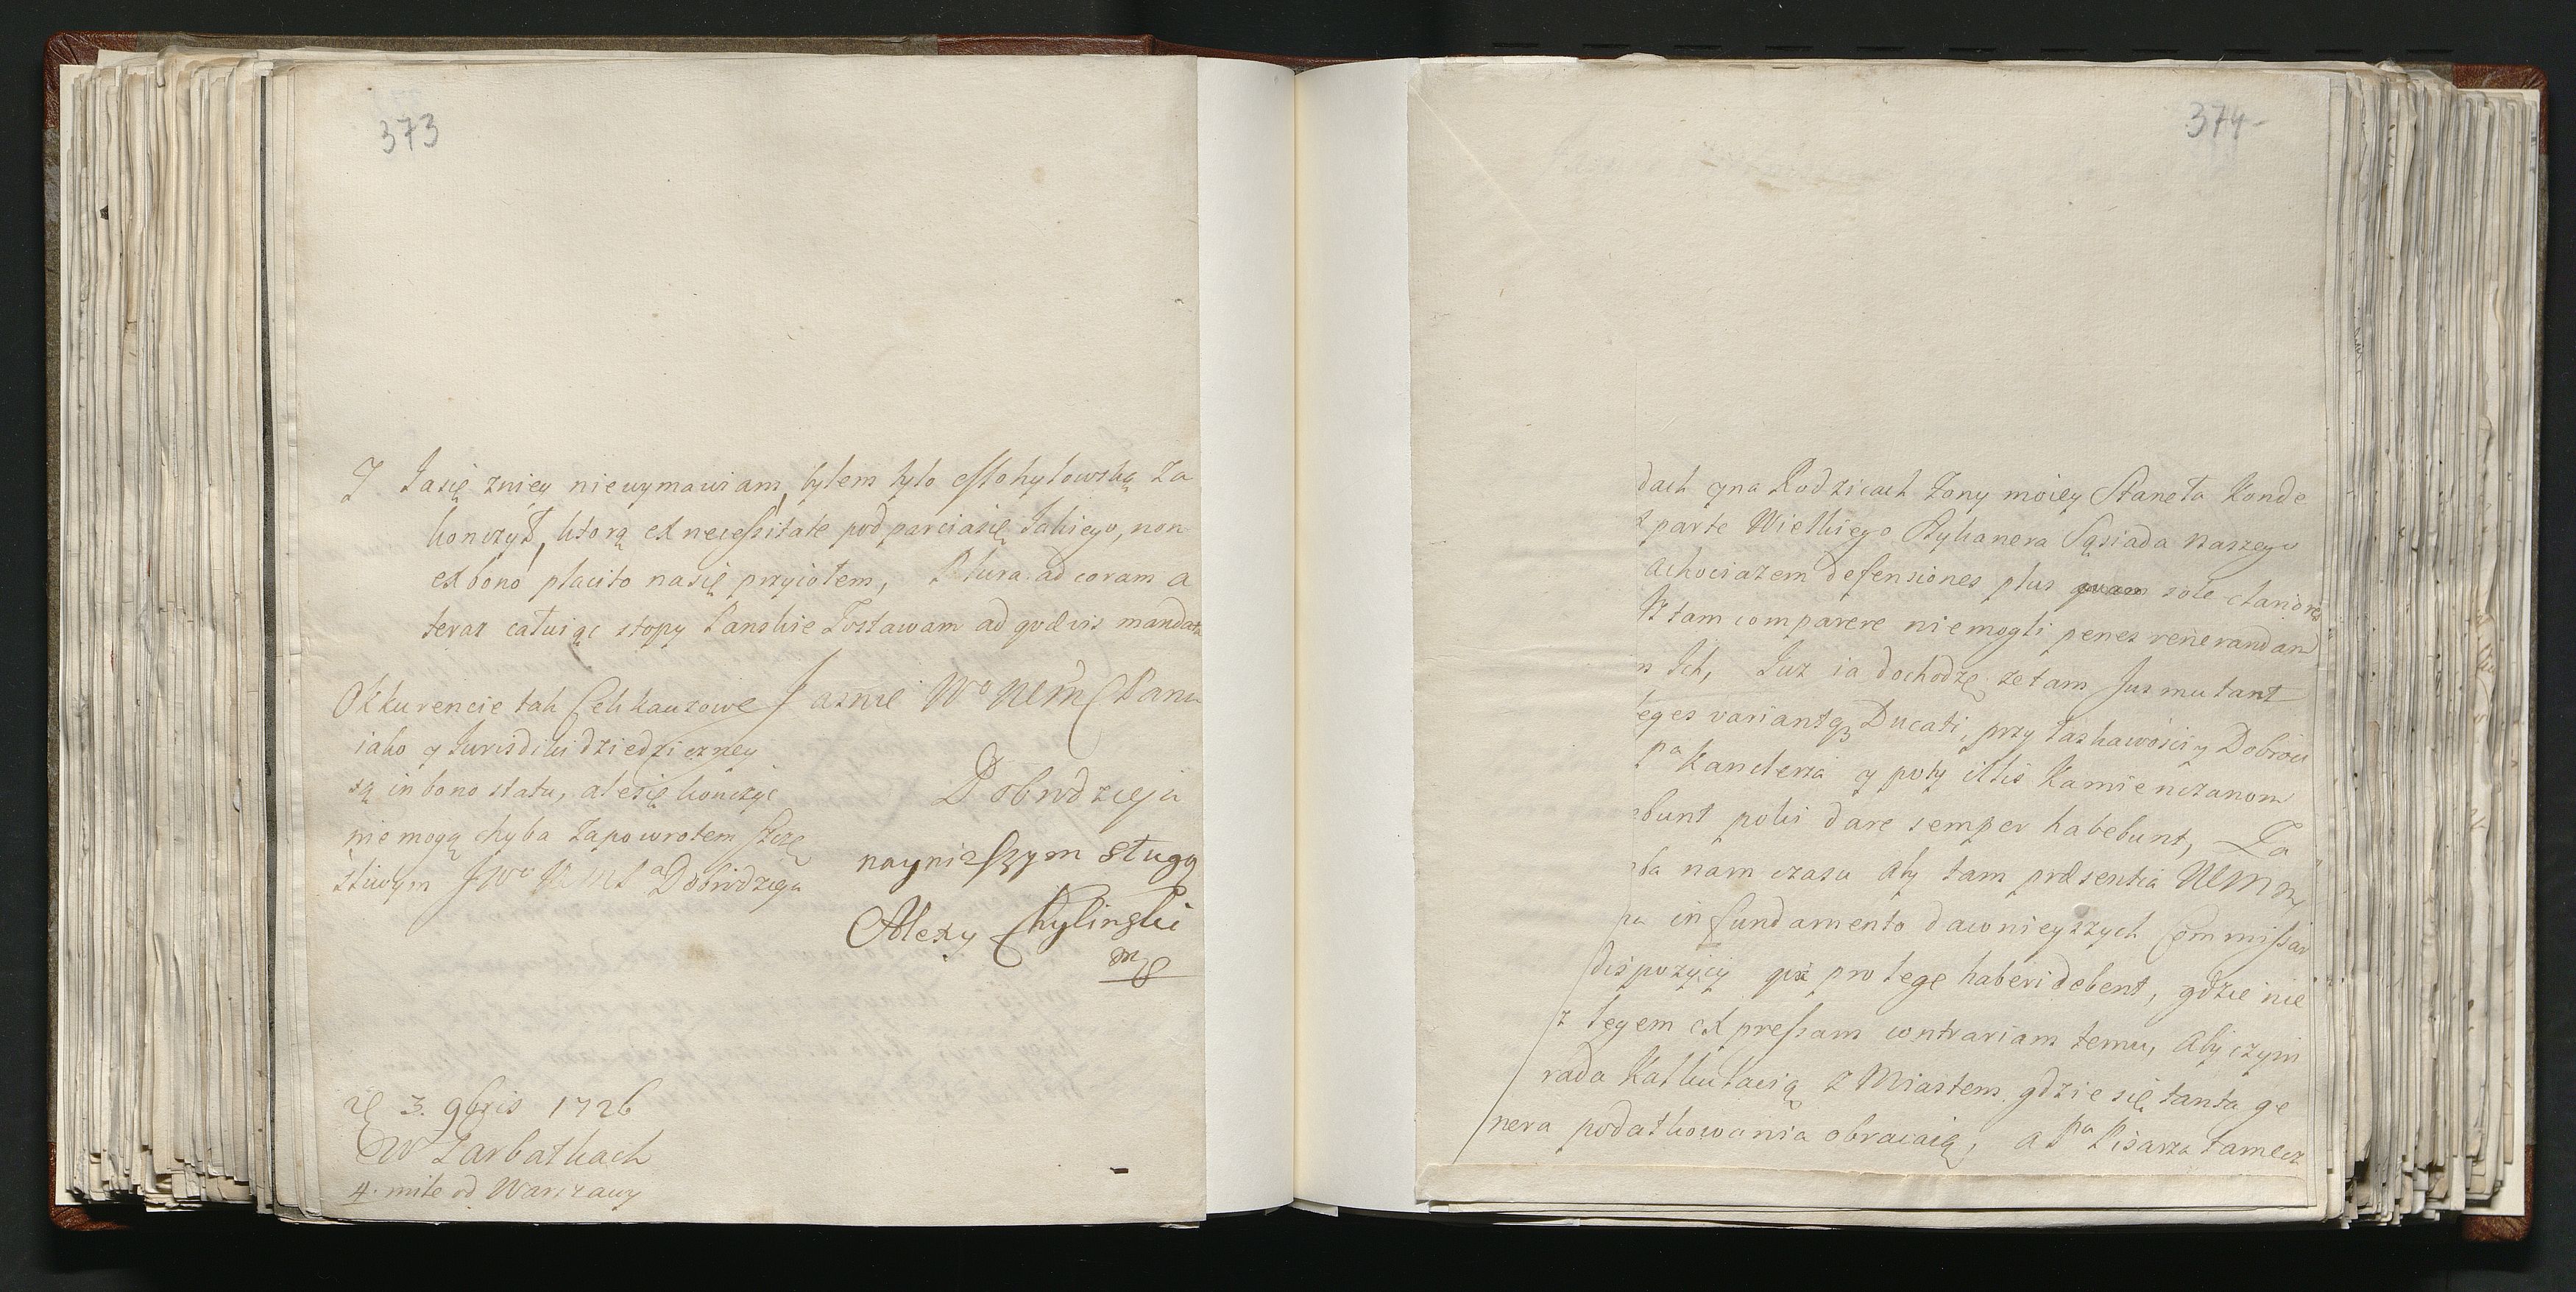 373
J Jasię zniey niewymawiam, bylem tylo essohylowską za
konczył, ktorą ex necessitate pod parciasię Jakiego, non
ex bono placito nasię przyiołem, Plura ad coram a
teraz całuiąc stopy Panskie Zostawam ad quævis mandata
Jasnie Wo WMm Pana
Dobrodzieja
nayniższym sługą
Alexy Chylinski
mp
Okkurencie tak Cekhauzowe
iako y Jurisdiki dziedziczney
są in bono statu, ale się konczyc
nie mogą chyba za powrotem szczę
śliwym JWo WMPa Dobrodzieja
D 3. 9bris 1726
W Zarbatkach
4. mile od Warszawy
374
dach y na Rodzicach Zony moiey Staneła Konde
x parte Wielkiego Rykanera Sąsiada naszego
achociazem defensiones plus quam sole clariores
tam comparere niemogli penes venerandam
n Ich, Juz ia dochodzę ze tam Jus mutant
eges variantq3 Ducati, przy łaskawości y Dobroci
pa Kanclerza y poty illis Kamienczanom
ebunt poki dare semper habebunt, Za
ba nam czasu aby tam præsentia WMm
pa in fundamento dawnieyszych Commissar
dispozycij quæ pro lege haberi debent, gdzie nie
z legem expressam contrariam temu, aby czyni
rada Kalkulacią z Miastem gdzie się tanta ge
nera podatkowania obracaią, a Pa Pisarza tamecz